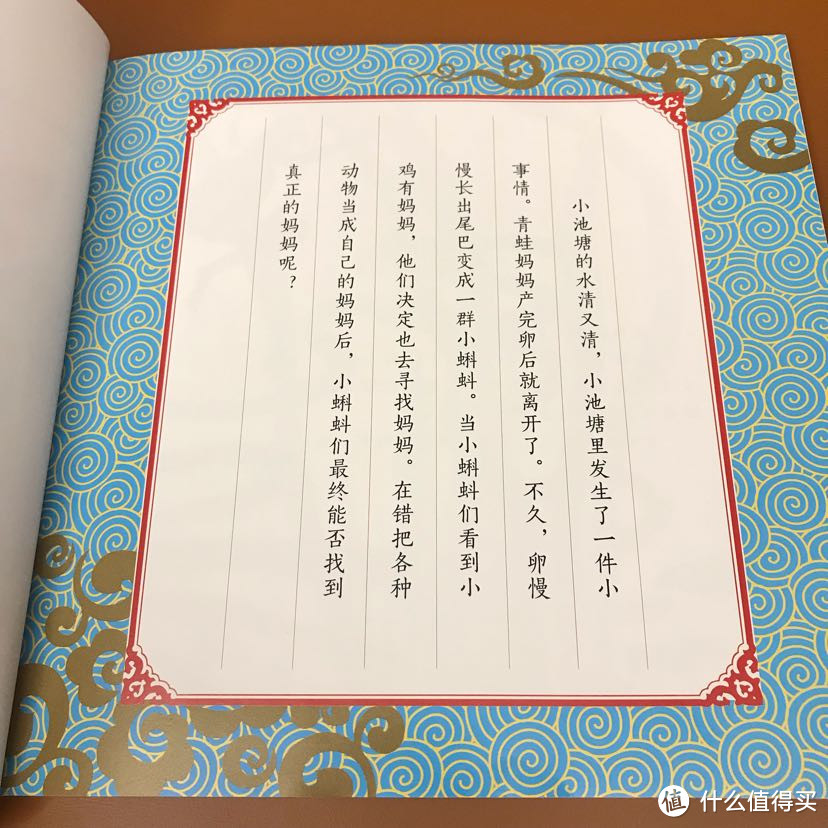 小池塘的水清又清，小池塘里发生了一件小
事情。青蛙妈妈产完卵后就离开了。不久，卵慢
慢长出尾巴变成一群小蝌蚪。当小蝌蚪们看到小
鸡有妈妈，他们决定也去寻找妈妈。在错把各种
动物当成自己的妈妈后，小蝌蚪们最终能否找到
真正的妈妈呢？
值 什么值得买